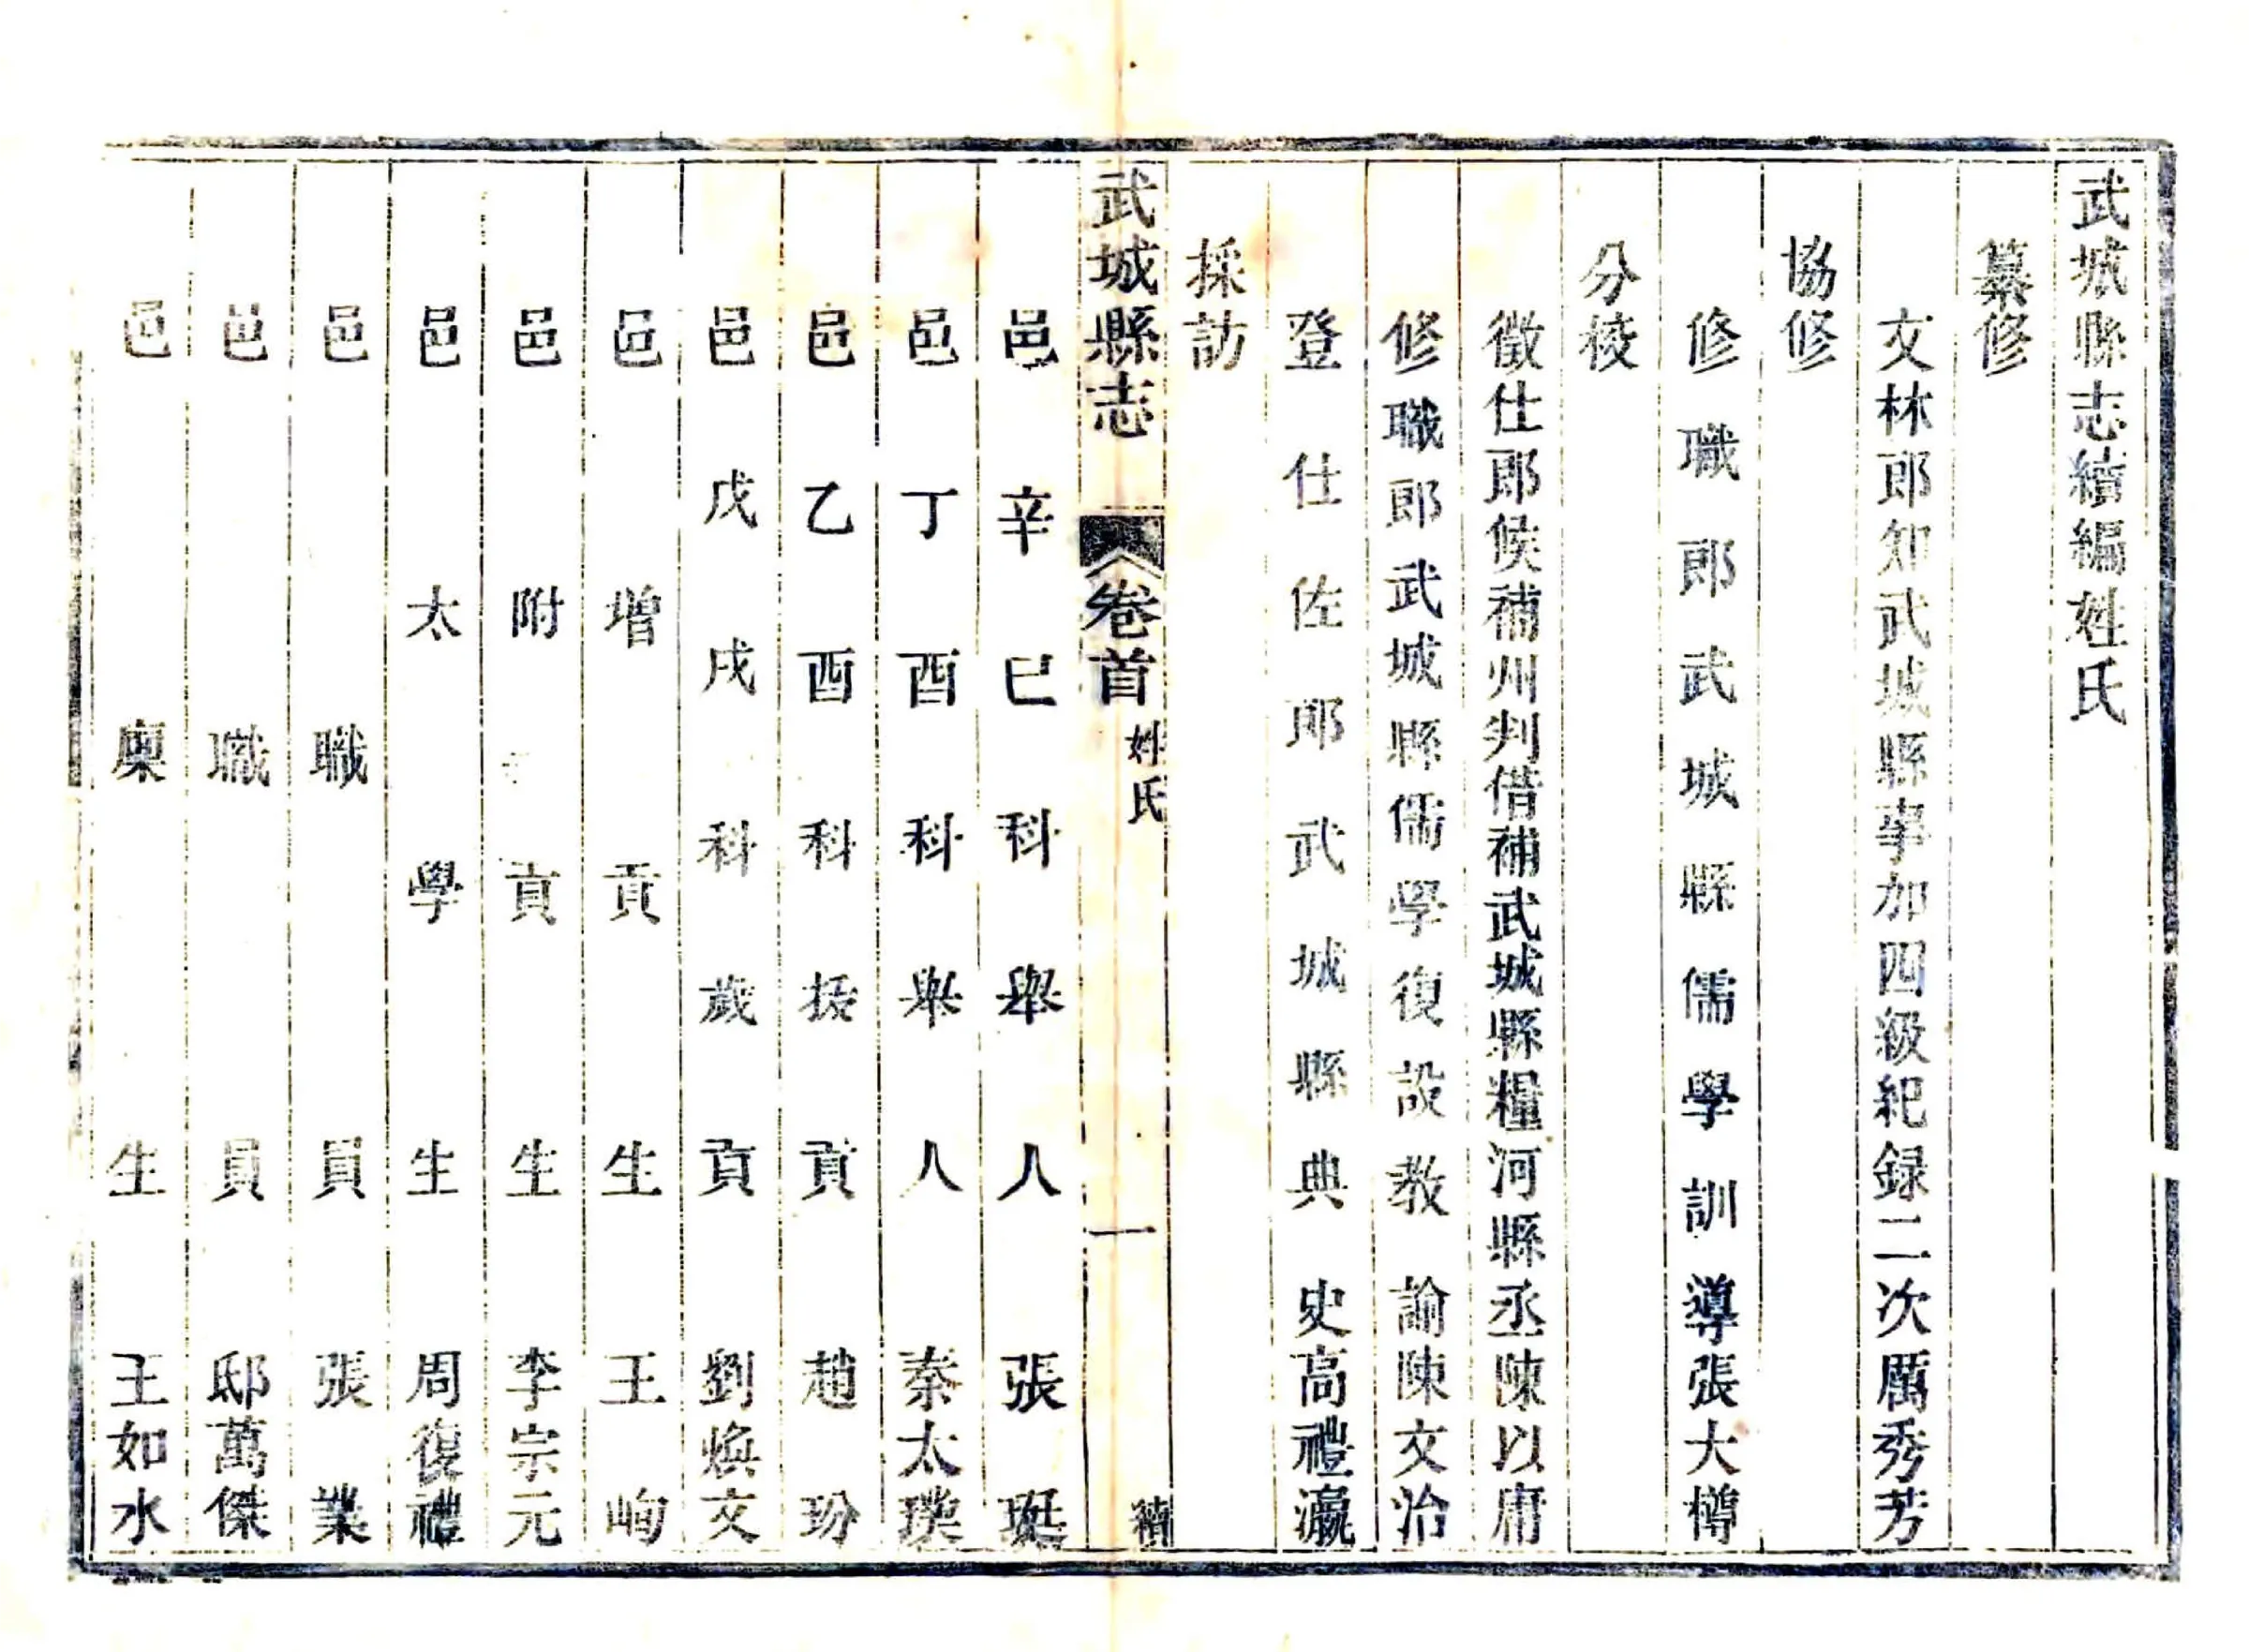 武城縣志續編姓氏
纂修
文林郎知武城縣事加四級紀録二次厲秀芳
協修
修職郎武城縣儒學訓導張大樽
分校
徵仕郎候補州判借補武城縣糧河縣丞陳以庸
修職郎武城縣儒學復設教諭陳文治
登仕佐郎武城縣典史高禮瀛
採訪
武城縣志 卷首 姓氏 一 續
邑辛巳科舉人張珽
邑丁酉科舉人秦太璞
邑乙酉科拔貢趙玢
邑戊戌科歲貢劉煥文
邑增貢生王峋
邑附貢生李宗元
邑太學生周復禮
邑職員張業
邑職員邸萬傑
邑廩生王如水